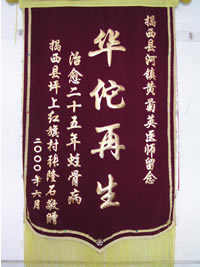 揭西县河镇黄菊英医师留念
华佗再生
治愈二十五年蛀骨病
揭西县坪上红旗村张隆石敬赠
二〇〇〇年六月